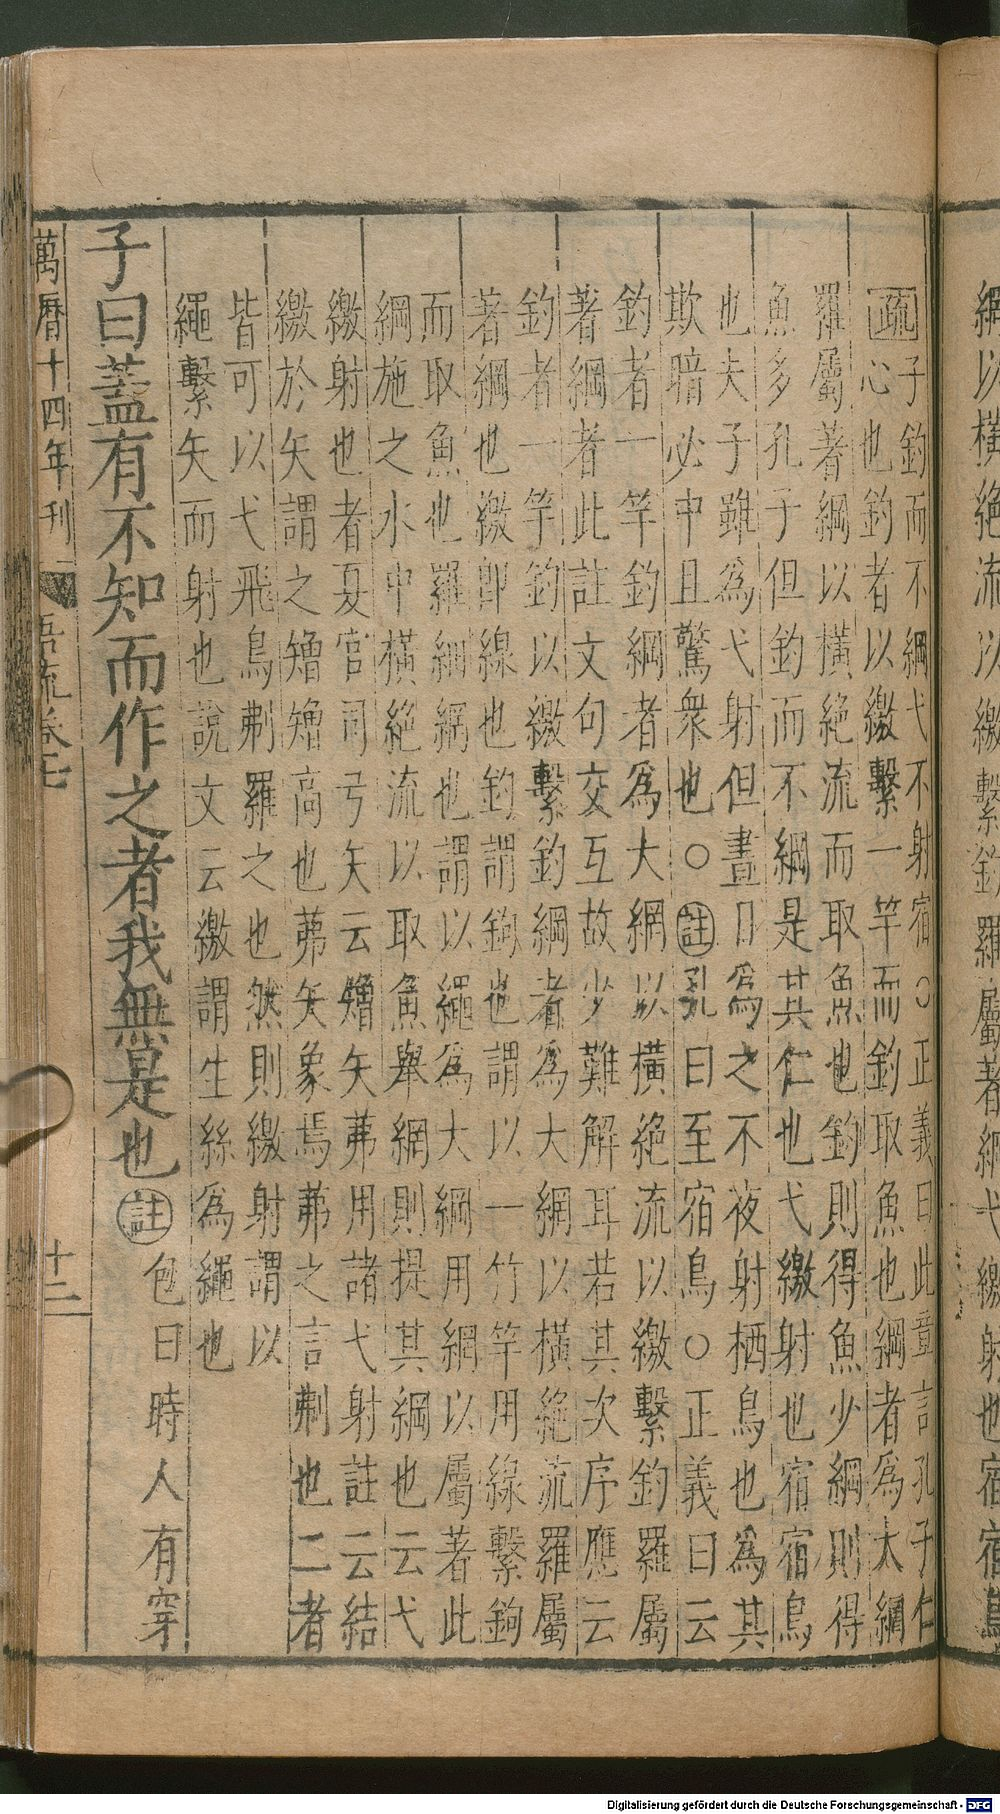 綱以横絶流以繳繫釣羅屬著綱弋繳射也宿宿鳥
疏子釣而不綱弋不射宿○正義曰此章言孔子仁
心也釣者以繳繫一竿而釣取魚也綱者為大網
羅屬著綱以橫絶流而取魚也釣則得魚少綱則得
魚多孔子但釣而不綱是其仁也弋繳射也宿宿鳥
也夫子雖為弋射但晝日為之不夜射栖鳥也為其
欺暗必中且驚衆也○註孔曰至宿鳥○正義曰云
釣者一竿釣綱者為大網以橫絶流以繳繫釣羅屬
著綱者此註文句交互故少難解耳若其次序應云
釣者一竿釣以繳繫釣綱者為大網以橫絶流羅屬
著綱也繳卽線也釣謂鉤也謂以一竹竿用線繫鉤
而取魚也羅細網也謂以繩為大綱用網以屬著此
綱施之水中橫絶流以取魚舉網則提其綱也云弋
繳射也者夏官司弓矢云矰矢茀用諸弋射註云結
繳於矢謂之矰矰高也茀矢象焉茀之言刜也二者
皆可以弋飛鳥刜羅之也然則繳射謂以
繩繫矢而射也說文云繳謂生絲為繩也
子曰蓋有不知而作之者我無是也註包曰時人有穿
萬曆十四年刊 疏卷七 十二
Digitalisierung gefördert durch die Deutsche Forschungsgemeinschaft - DFG